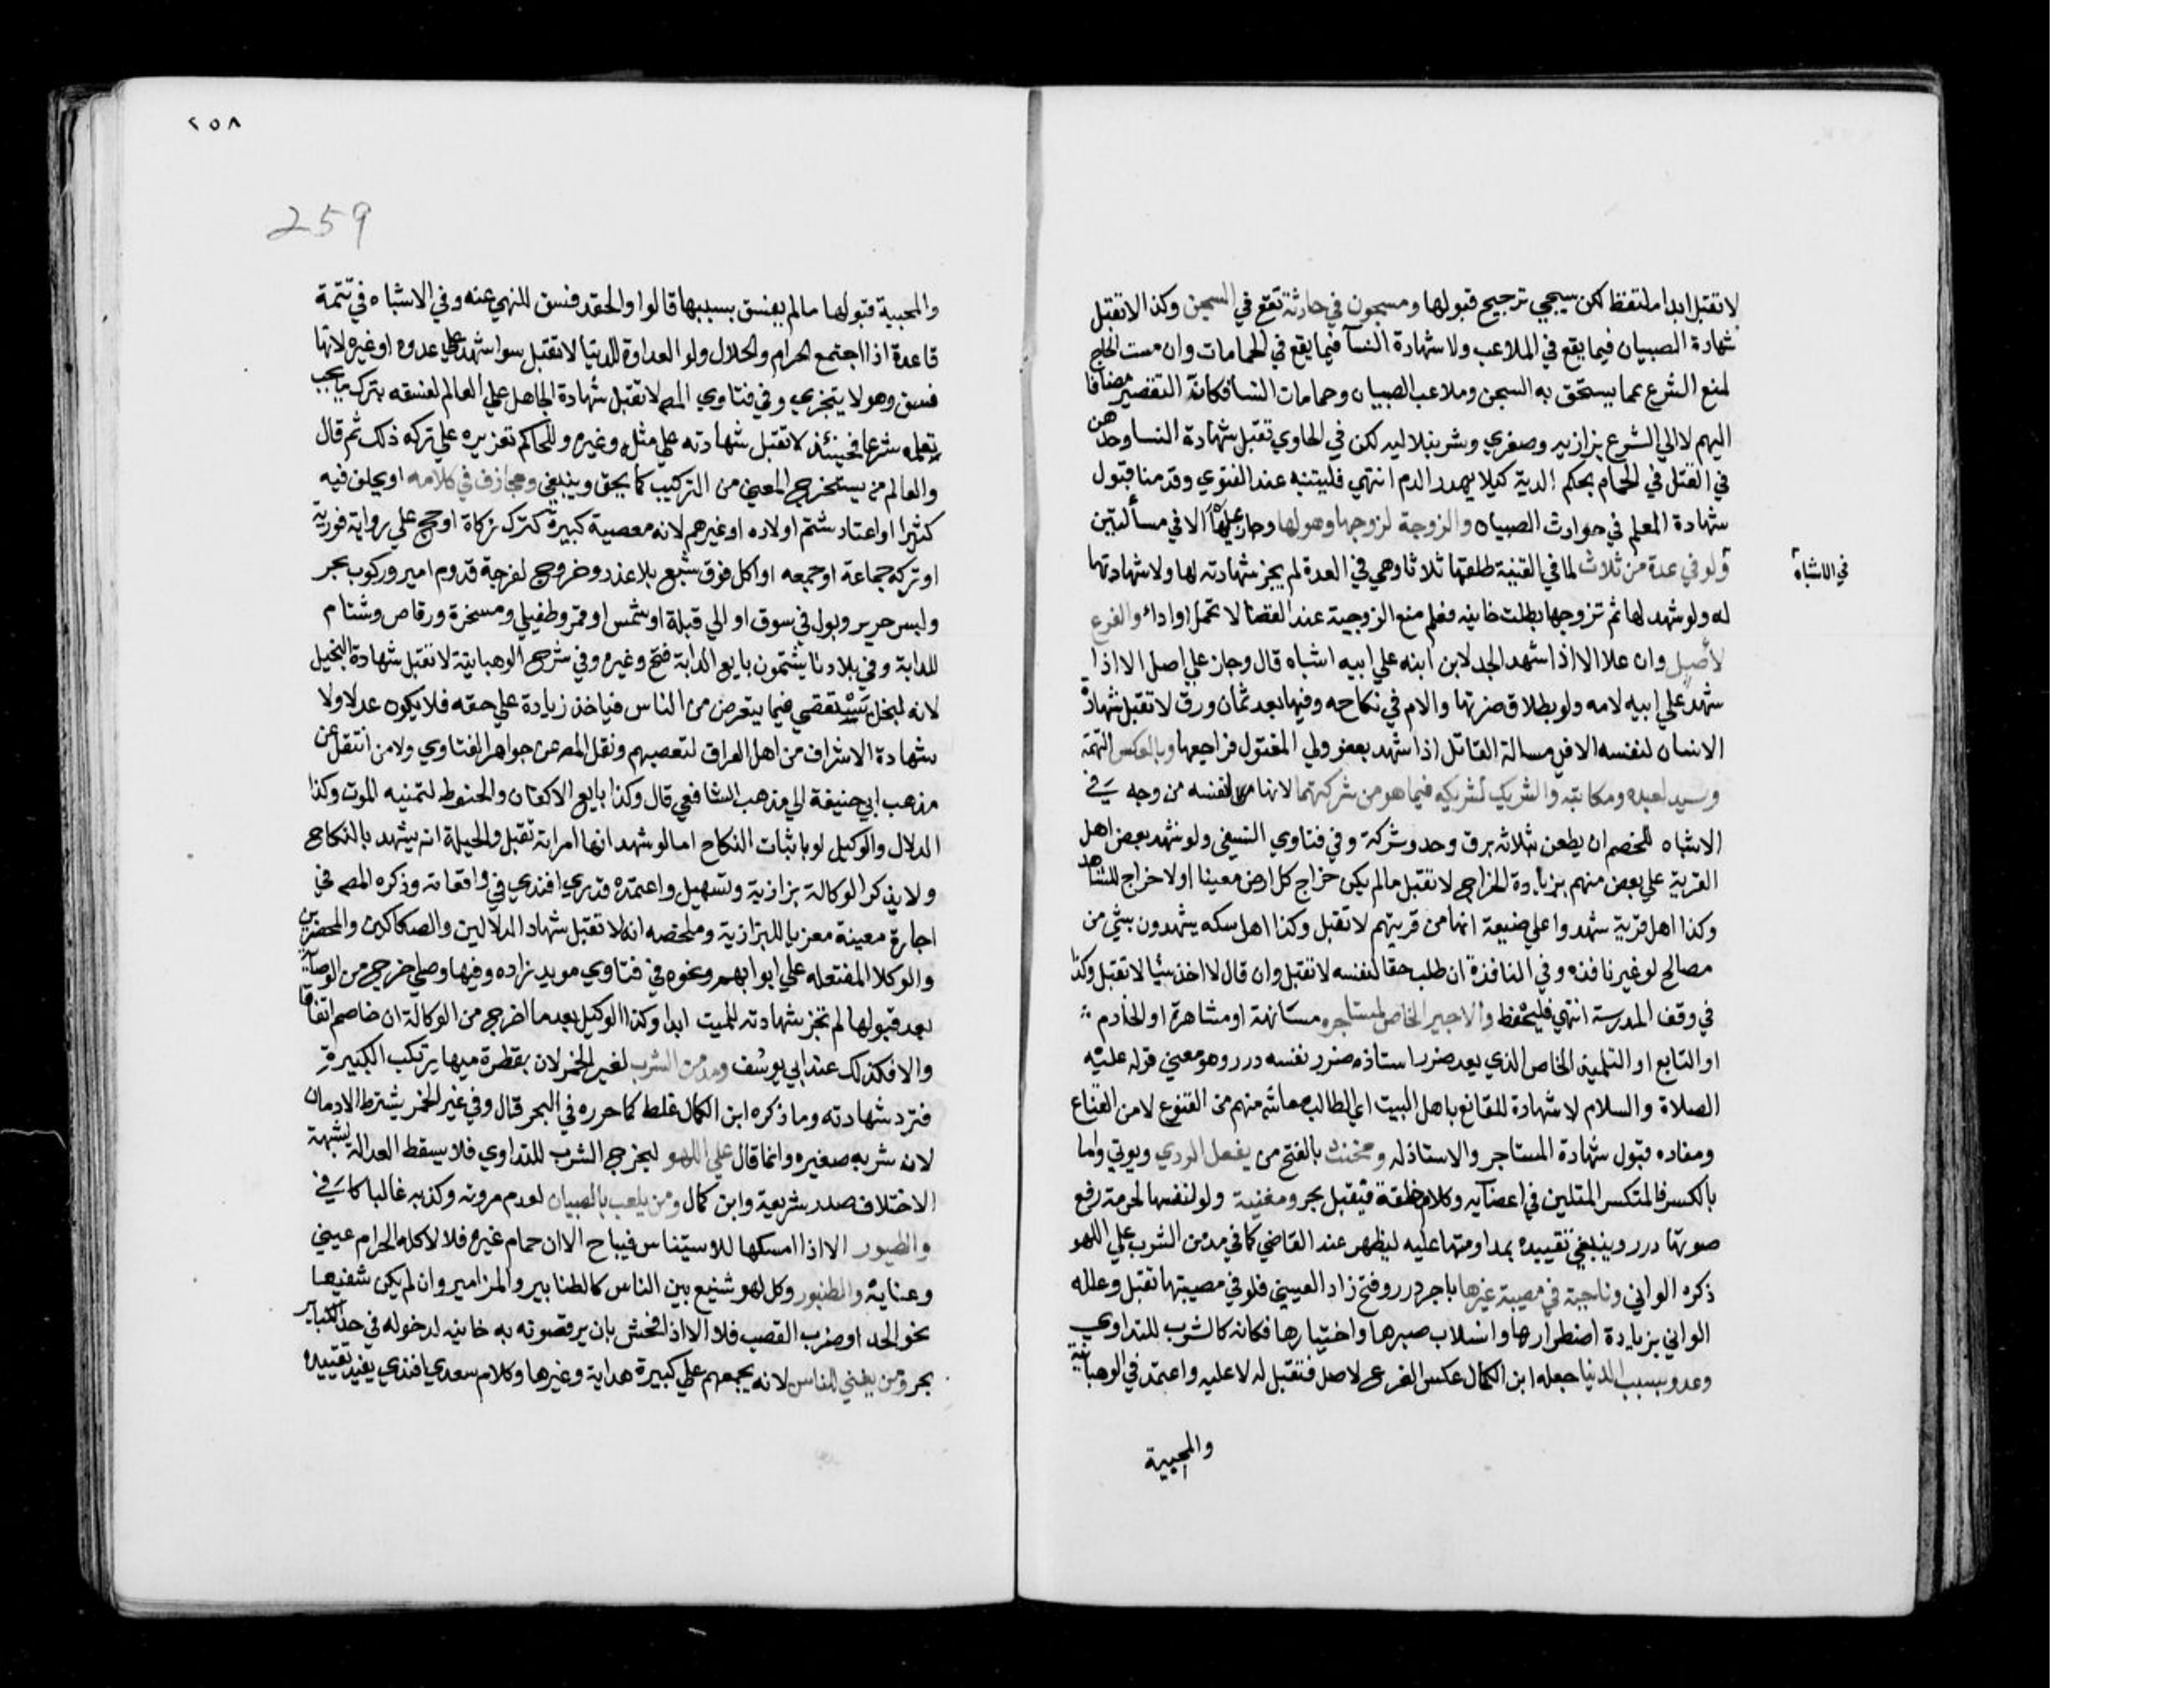 لا تقتبل ابدا ملتقط لكن سيجي ترجيح قبولها ومسجون في حادثة تقع في السجن وكذا لا تقتبل
شهادة الصبيان فيما يقع في الملاعب ولا شهادة النسآ فيما يقع في الحمامات وان مست الحاج
لمنع الشرع عما يستحق به السجن وملاعب الصبيان وحمامات النسا فكانه التقصير مضافا
اليهم لا الي الشرع بزازيه وصغري وشرنبلاليه لكن في الحاوي تقبل شهادة النسا وحدهن
في القتل في الحمام بحكم الدية كيلا يهدر الدم انتهي فليتنبه عند الفتوي وقدمنا قبول
شهادة المعلم في حوادث الصبيان والزوجة لزوجها وهو لها وجاز عليها الا في مسألتين
في الاشباه
ولو في عدة من ثلاث لما في القنية طلقها ثلاثا وهي في العدة لم يجز شهادته لها ولا شهادتها
له ولو شهد لها ثم تزوجها بطلت خانيه فعلم منع الزوجية عند القضا لا تحمل او اداء والفرع
لأصل وان علا الا اذا شهد الجد لابن ابنه علي ابيه اشباه قال وجاز علي اصل الا اذا
شهد علي ابيه لامه ولو بطلاق ضرتها والام في نكاحه وفيها بعد ثمان ورق لا تقبل شهادة
الانسان لنفسه الا في مسالة القاتل اذا شهد بعفو ولي المقتول فراجعها وبالعكس للتهمة
وسيد لعبده ومكاتبه والشريك لشريكه فيما هو من شركتهما لانها لنفسه من وجه في
الاشباه للخصم ان يطعن بثلاثه برق وحد وشركة وفي فتاوي النسفي ولو شهد بعض اهل
القرية علي بعض منهم بزيادة الخراج لا تقبل ما لم يكن خراج كل ارض معينا او لا خراج للشاهد
وكذا اهل قرية شهدوا علي ضيعة انها من قريتهم لا تقبل وكذا اهل سكه يشهدون بشي من
مصالح لو غير نافذه وفي النافذة ان طلب حقا لنفسه لا تقبل وان قال لا اخذ شيا لا تقبل وكذا
في وقف المدرسة انتهي فليحفظ والاجير الخاص لمستاجره مسانهة او مشاهرة او الخادم
او التابع او التلميذ الخاص الذي يعد ضرر استاذه ضرر نفسه درر وهو معني قوله عليه
الصلاة والسلام لا شهادة للقانع باهل البيت اي الطالب معاشه منهم من القنوع لا من القناع
ومفاده قبول شهادة المستاجر والاستاذ له ومخنث بالفتح من يفعل الردي ويوتي واما
بالكسر فالمتكسر المتلين في اعضآيه وكلامه خلقة فتقبل بحر ومغنية ولو لنفسها لحرمة رفع
صوتها درر وينبغي تقييده بمداومتها عليه ليظهر عند القاضي كما في مدمن الشرب علي اللهو
ذكره الواني وناحبة في مصيبة غيرها باجر درر وفتح زاد العيني فلو في مصيبتها تقبل وعلله
الواني بزيادة اضطرارها وانسلاب صبرها واختيارها فكانه كالشرب للتداوي
وعدو بسبب الدنيا جعله ابن الكمال عكس الفرع لاصل فتقبل له لا عليه واعتمد في الوهبانية
والمحبية
٢٥٨
259
والمحبية قبولها ما لم يفسق بسببها قالوا والحقد فسق للنهي عنه وفي الاشباه في تتمة
قاعدة اذا اجتمع الحرام والحلال ولو العداوة للدنيا لا تقبل سوا شهد علي عدوه او غيره لانها
فسق وهو لا يتجزي وفي فتاوي المصـ لا تقبل شهادة الجاهل علي العالم لفسقه بترك ما يجب
تعلمه شرعا فحينئذ لا تقبل شهادته علي مثله وغيره وللحاكم تعزيره علي تركه ذلك ثم قال
والعالم من يستخرج المعني من التركيب كما يحق وينبغي ومجازف في كلامه او يحلف فيه
كثيرا او اعتاد شتم اولاده او غيرهم لانه معصية كبيرة كترك زكاة او حج علي رواية فورية
او تركه جماعة او جمعه او اكل فوق شبع بلا عذر وخروج لفرجة قدوم امير وركوب بحر
ولبس حرير وبول في سوق او الي قبلة او شمس او قمر وطفيلي ومسخرة ورقاص وشتام
للدابة وفي بلادنا يشتمون بايع الدابة فتح وغيره وفي شرح الوهبانية لا تقبل شهادة البخيل
لانه لبخله يستقصي فيما يتقرض من الناس فياخذ زيادة علي حقه فلا يكون عدلا ولا
شهادة الاشراف من اهل العراق لتعصبهم ونقل المصـ عن جواهر الفتاوي ولا من انتقل عن
مذهب ابي حنيفة الي مذهب الشافعي قال وكذا بايع الاكفان والحنوط لتمنيه الموت وكذا
الدلال والوكيل لو باثبات النكاح اما لو شهد انها امراته تقبل والحيلة انه يشهد بالنكاح
ولا يذكر الوكالة بزازية وتسهيل واعتمده قدري افندي في واقعاته وذكره المصـ في
اجارة معينة معزيا للبزازية وملخصه انه لا تقبل شهاد الدلالين والصكاكين والمحضرين
والوكلا المفتعله علي ابوابهم ونحوه في فتاوي مويد زاده وفيها وصي اخرج من الوصآية
بعد قبولها لم تجز شهادته للميت ابدا وكذا الوكيل بعد ما اخرج من الوكالة ان خاصم اتفاقا
والا فكذلك عند ابي يوسف ومدمن الشرب لغير الخمر لان بقطرة منها يرتكب الكبيرة
فترد شهادته وما ذكره ابن الكمال غلط كما حرره في البحر قال وفي غير الخمر يشترط الادمان
لان شربه صغيره وانما قال علي اللهو ليخرج الشرب للتداوي فلا يسقط العدالة لشبهة
الاختلاف صدر شريعة وابن كمال ومن يلعب بالصبيان لعدم مروته وكذبه غالبا كافي
والطيور الا اذا امسكها للاستيناس فيباح الا ان حمام غيره فلا لاكله الحرام عيني
وعناية والطنبور وكل لهو شنيع بين الناس كالطنابير والمزامير وان لم يكن شنيعا
نحو الحد او ضرب القصب فلا الا اذا فحش بان يرقصوته به خانيه لدخوله في حد الكباير
بحر ومن يغني للناس لانه يجمعهم علي كبيرة هداية وغيرها وكلام سعدي افندي يفيد تقييده